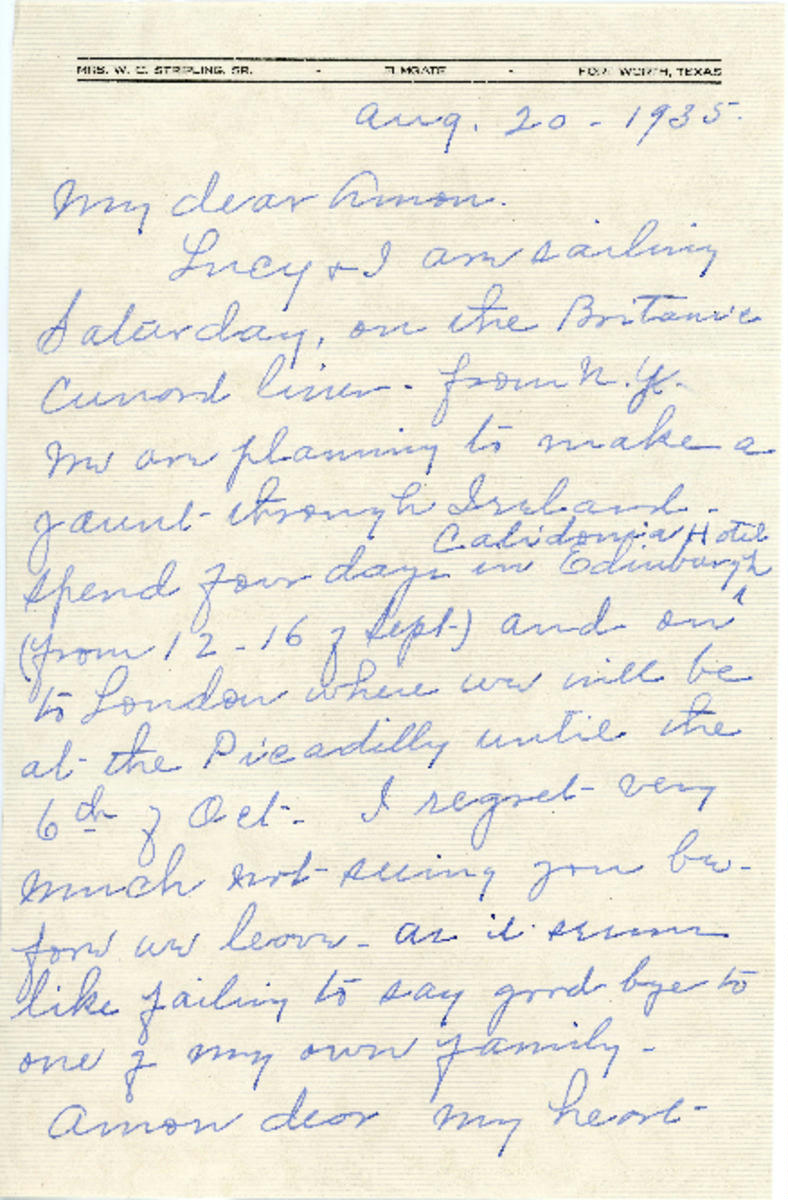 MRS. W. C. STRIPLING, SR. - ELMGATE - FORT WORTH, TEXAS
Aug. 20 - 1935.
My dear Amon.
Lucy & I are sailing
Saturday, on the Britanic
Cunard liner - from N.Y.
We are planning to make a
jaunt through Ireland -
Calidonia Hotel
spend four days in Edinburgh
(from 12 - 16 of Sept.) and on
to London where we will be
at the Picadilly until the
6th of Oct - I regret very
much not seeing you be-
fore we leave - as it seems
like failing to say good bye to
one of my own family -
Amon dear my heart